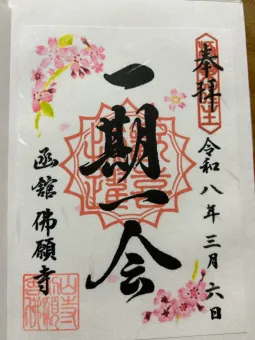 奉拝
令和八年三月六日
一期一会
函館 佛願寺